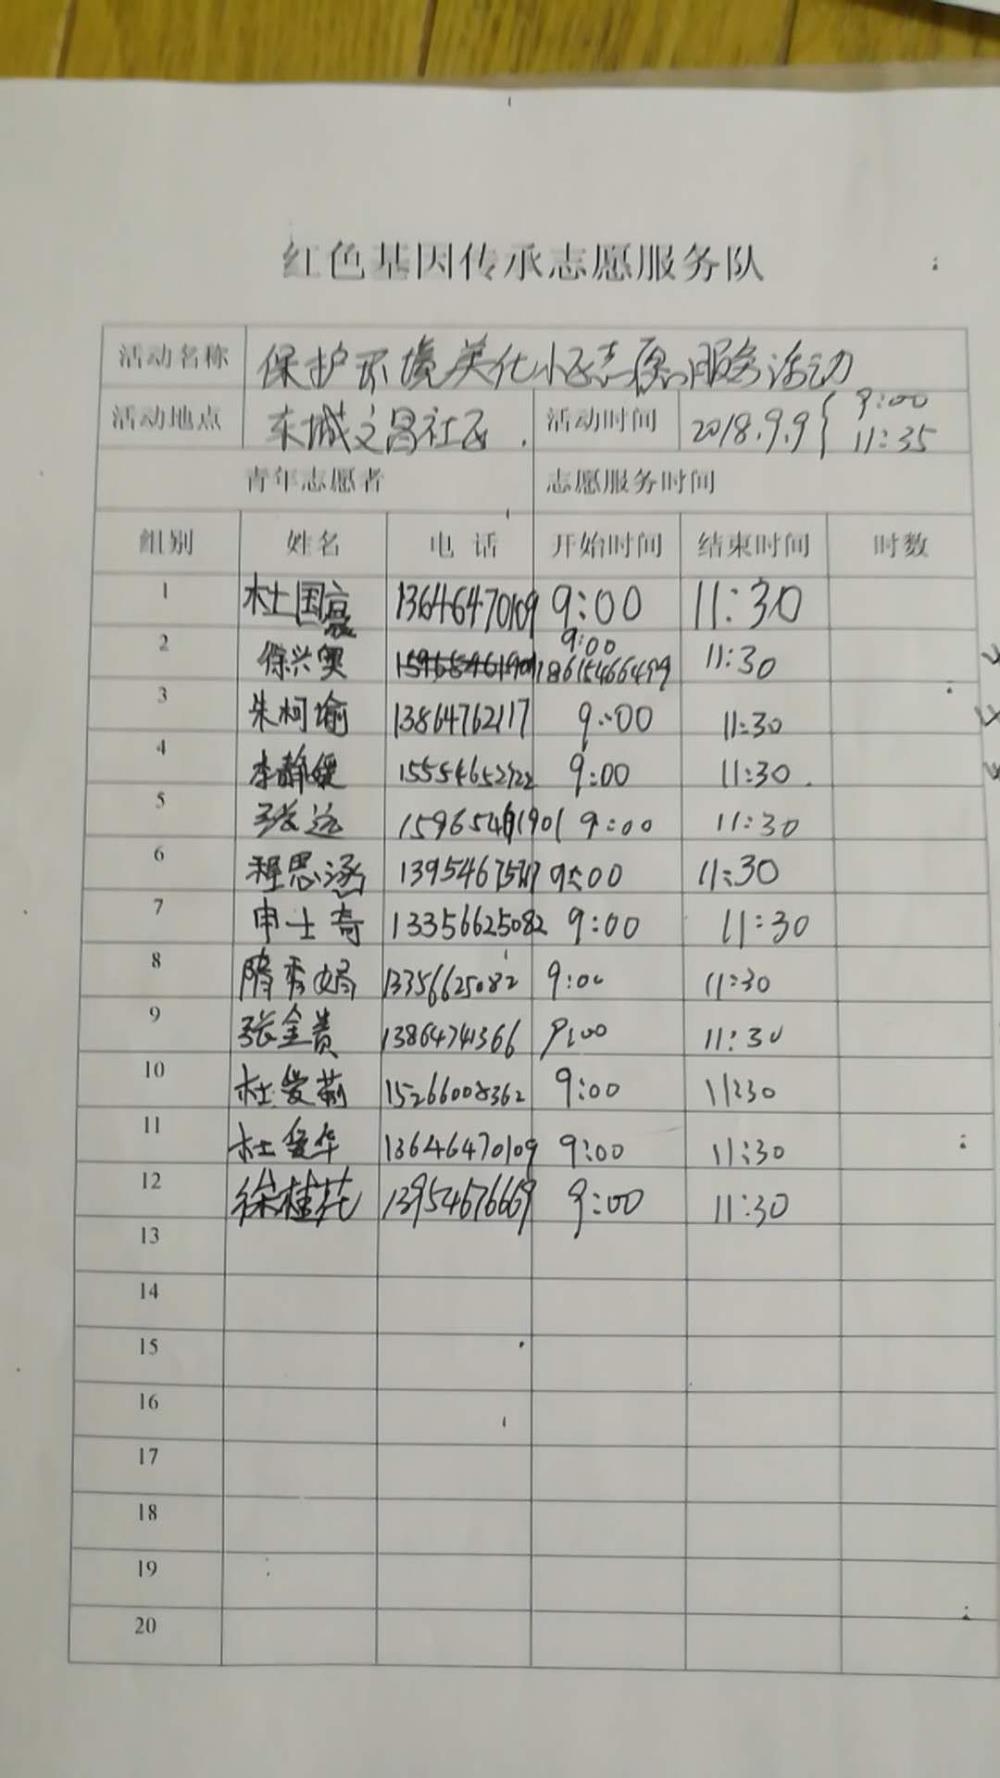 红色基因传承志愿服务队
活动名称 保护环境美化小区志愿服务活动
活动地点 东城文昌社区. 活动时间 2018.9.9 { 9:00 11:35
青年志愿者 志愿服务时间
组别 姓名 电话 开始时间 结束时间 时数
1 杜国 13646470109 9:00 11:30
2 徐兴奥 18615466499 9:00 11:30
3 朱柯瑜 13864762117 9:00 11:30
4 李静媛 9:00 11:30.
5 张运 9:00 11:30
6 程思涵 9:00 11:30
7 申士奇 13356625082 9:00 11:30
8 隋秀娟 13356625082 9:00 11:30
9 张金贵 13864741366 9:00 11:30
10 杜爱菊 15266008362 9:00 11:30
11 杜爱华 13646470109 9:00 11:30
12 徐桂花 13954676669 9:00 11:30
13
14
15
16
17
18
19
20